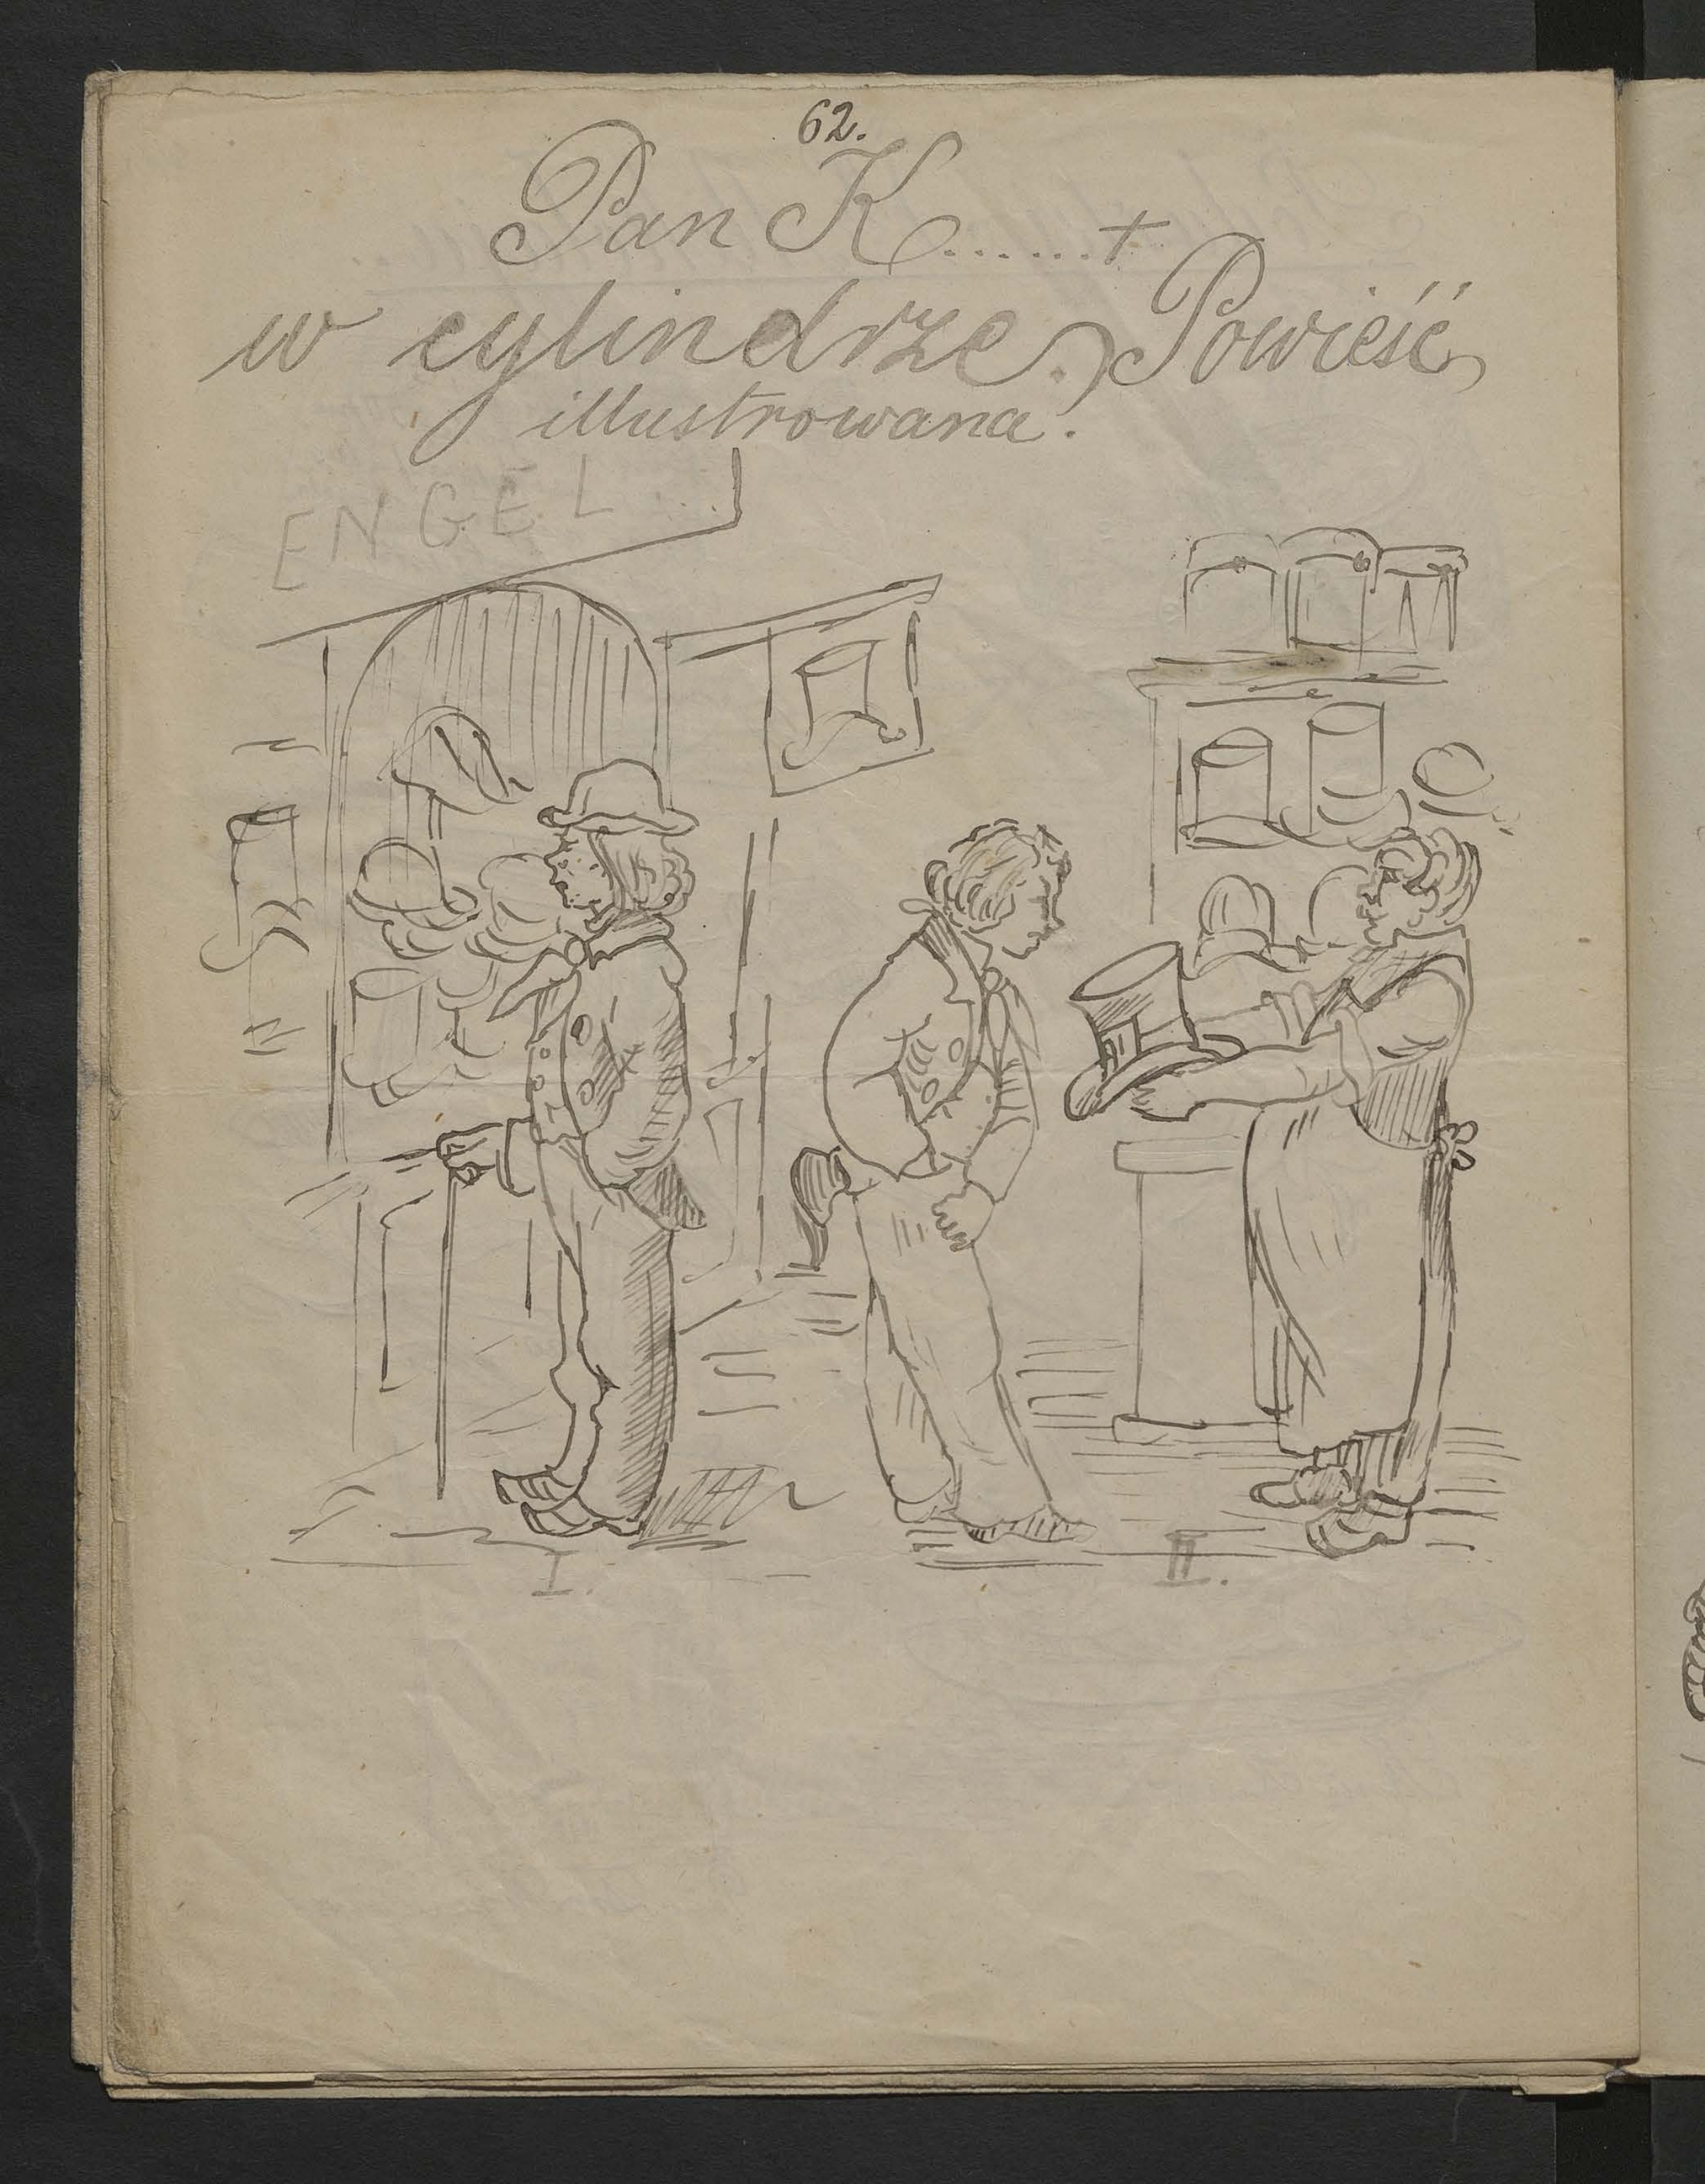 62.
Pan K......+
w cylindrze. Powieść
illustrowana.
ENGEL
I.
II.